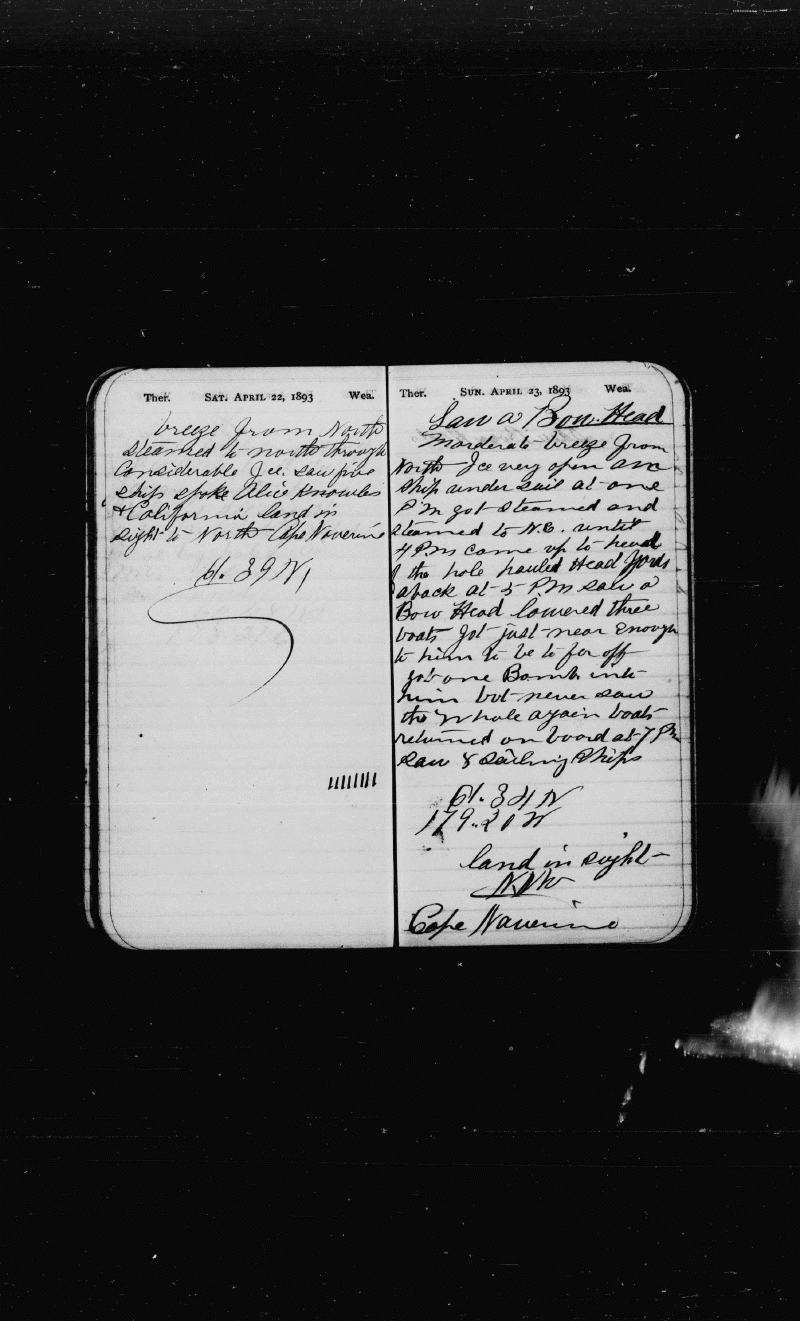 Ther. SAT. APRIL 22, 1893 Wea.
breeze from North
steamed to north through
Considerable Ice. saw five
ship spoke Alice Knowles
& California land in
sight to North Cape Naverine
61. 39 N
Ther. SUN. APRIL 23, 1893 Wea.
Saw a Bow Head
Morderate breeze from
North Ice very open
ship under sail at one
P M got steamed and
steamed to N.E. until
4 P.M came up to head
the hole hauled Head yards
aback at 5 PM saw a
Bow Head lowered three
boats got just near enough
to him to be to far off
got one Bomb into
him but never saw
the Whale again boats
returned on board at 7 PM
saw 8 sailing ships
61. 34 N
179. 20 W
land in sight
NNW
Cape Naverine